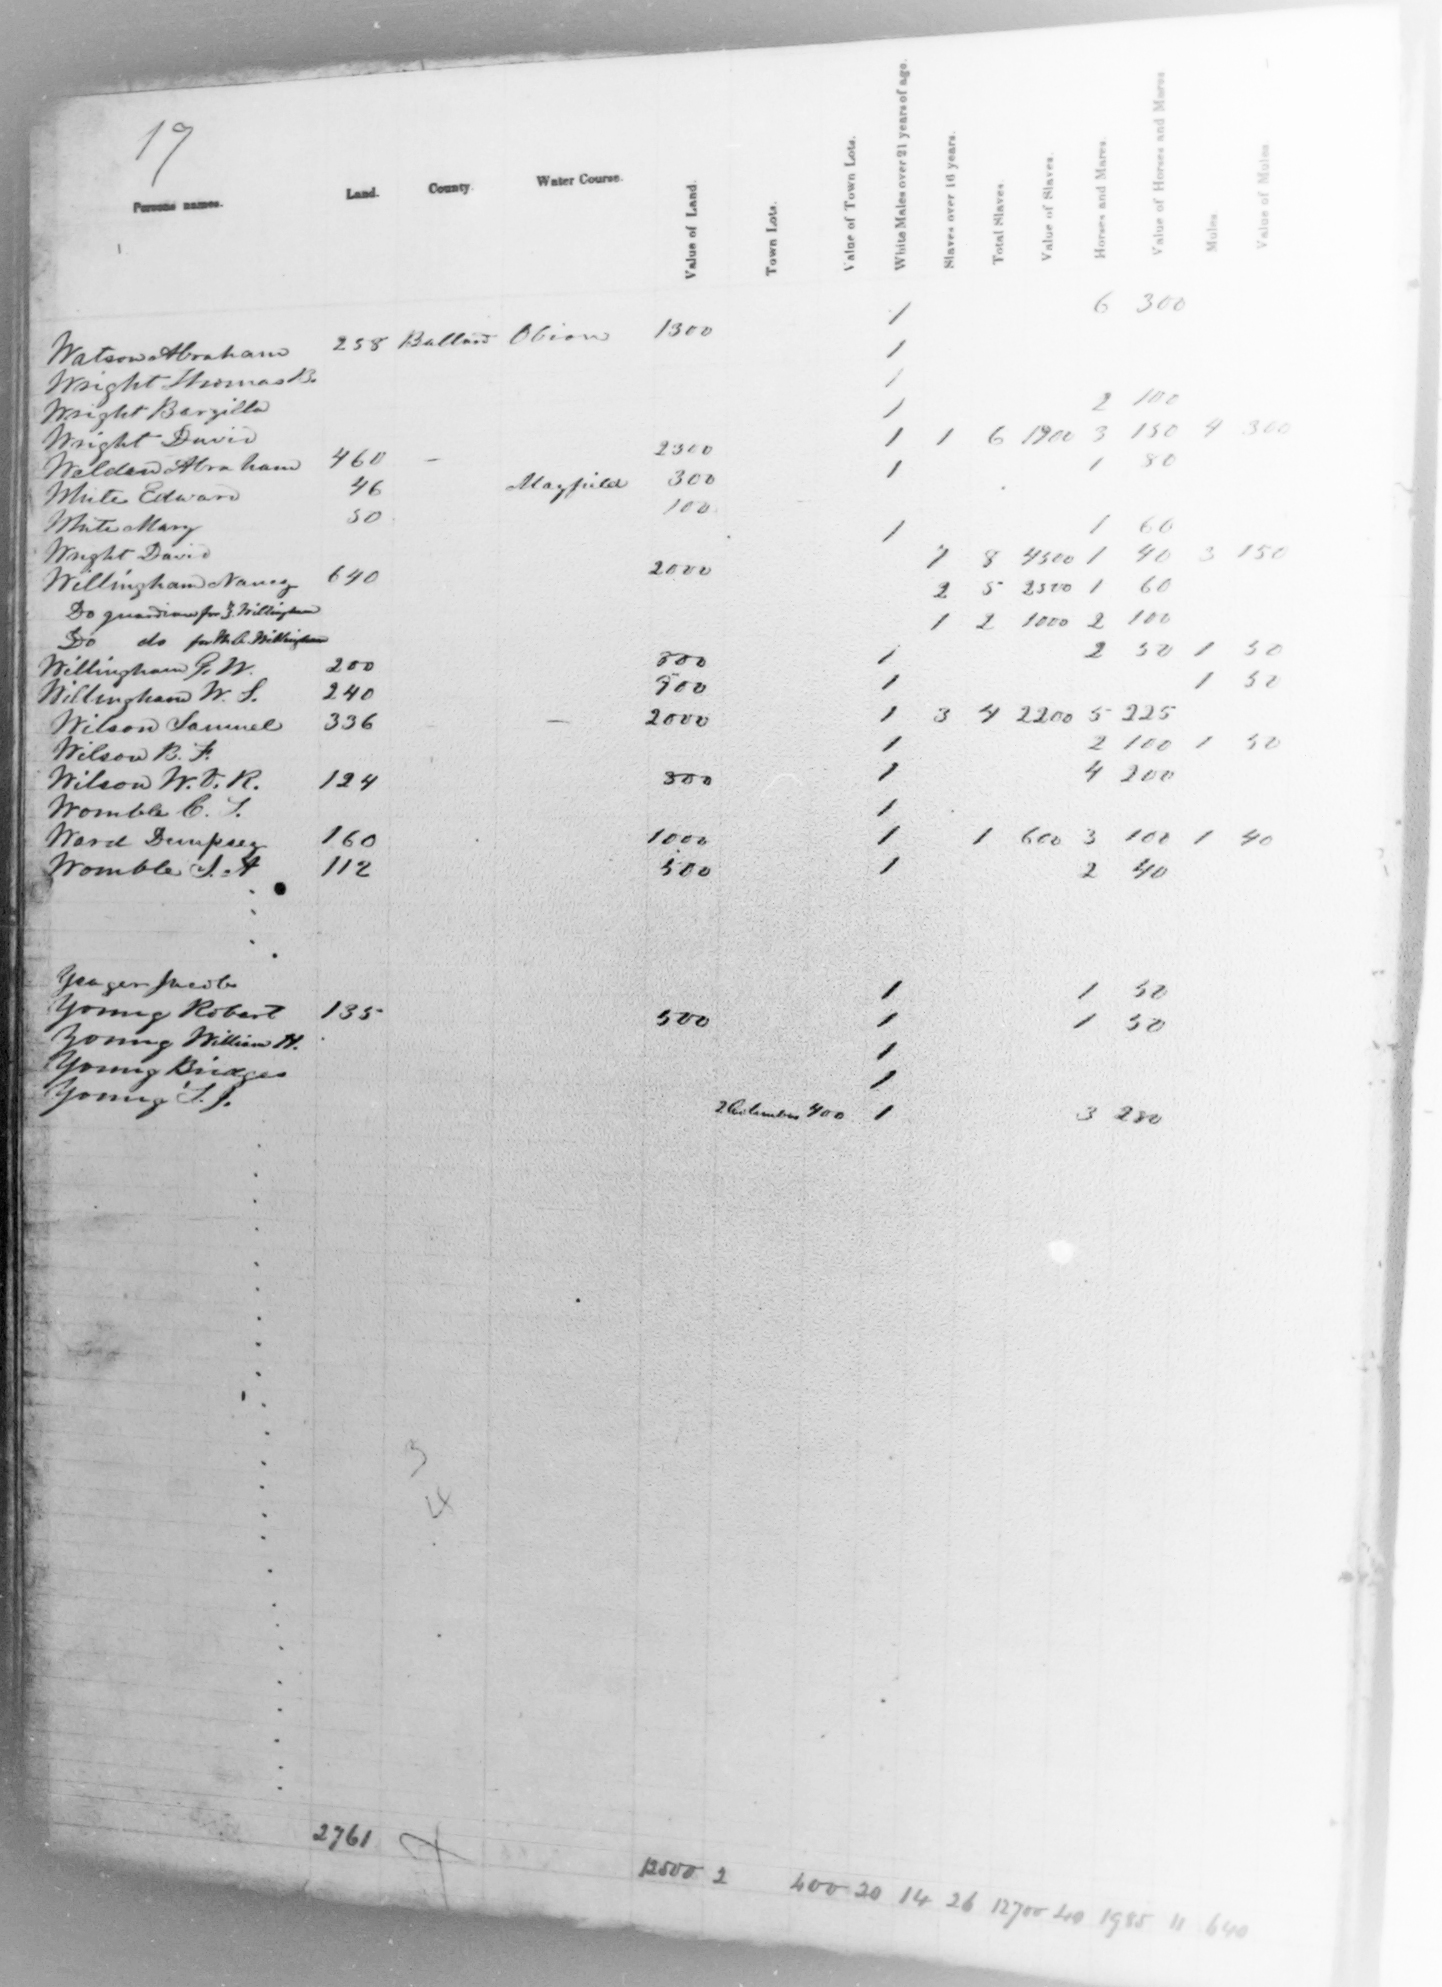 19
Persons names. Land. County. Water Course. Value of Land. Town Lots. Value of Town Lots. White Males over 21 years of age. Slaves over 16 years. Total Slaves. Value of Slaves. Horses and Mares. Value of Horses and Mares Mules Value of Mules
Watson Abraham 258 Ballard Obion 1300 1 6 300
Wright Thomas B. 1
Wright Barzilla 1
Wright David 1 2 100
Weldon Abraham 460 — 2300 1 1 6 1900 3 150 4 300
White Edward 46 Mayfield 300 1 1 80
White Mary 50 100
Wright David 1 1 60
Willingham Nancy 640 2000 7 8 4500 1 40 3 150
Do guardian for Willingham 2 5 2500 1 60
Do do for Willingham 1 2 1000 2 100
Willingham G. W. 200 800 1 2 50 1 50
Willingham W. S. 240 900 1 1 50
Wilson Samuel 336 — 2000 1 3 4 2200 5 225
Wilson B. F. 1 2 100 1 50
Wilson W. T. R. 124 800 1 4 200
Womble C. S. 1
Ward Dempsey 160 1000 1 1 600 3 100 1 40
Womble J. A 112 500 1 2 40
Yeager Jacob 1 1 50
Young Robert 135 500 1 1 50
Young William H. 1
Young Bridges 1
Young T. J. 2 Columbus 400 1 3 250
3
4
2761 12500 2 400 20 14 26 12700 40 1985 11 640